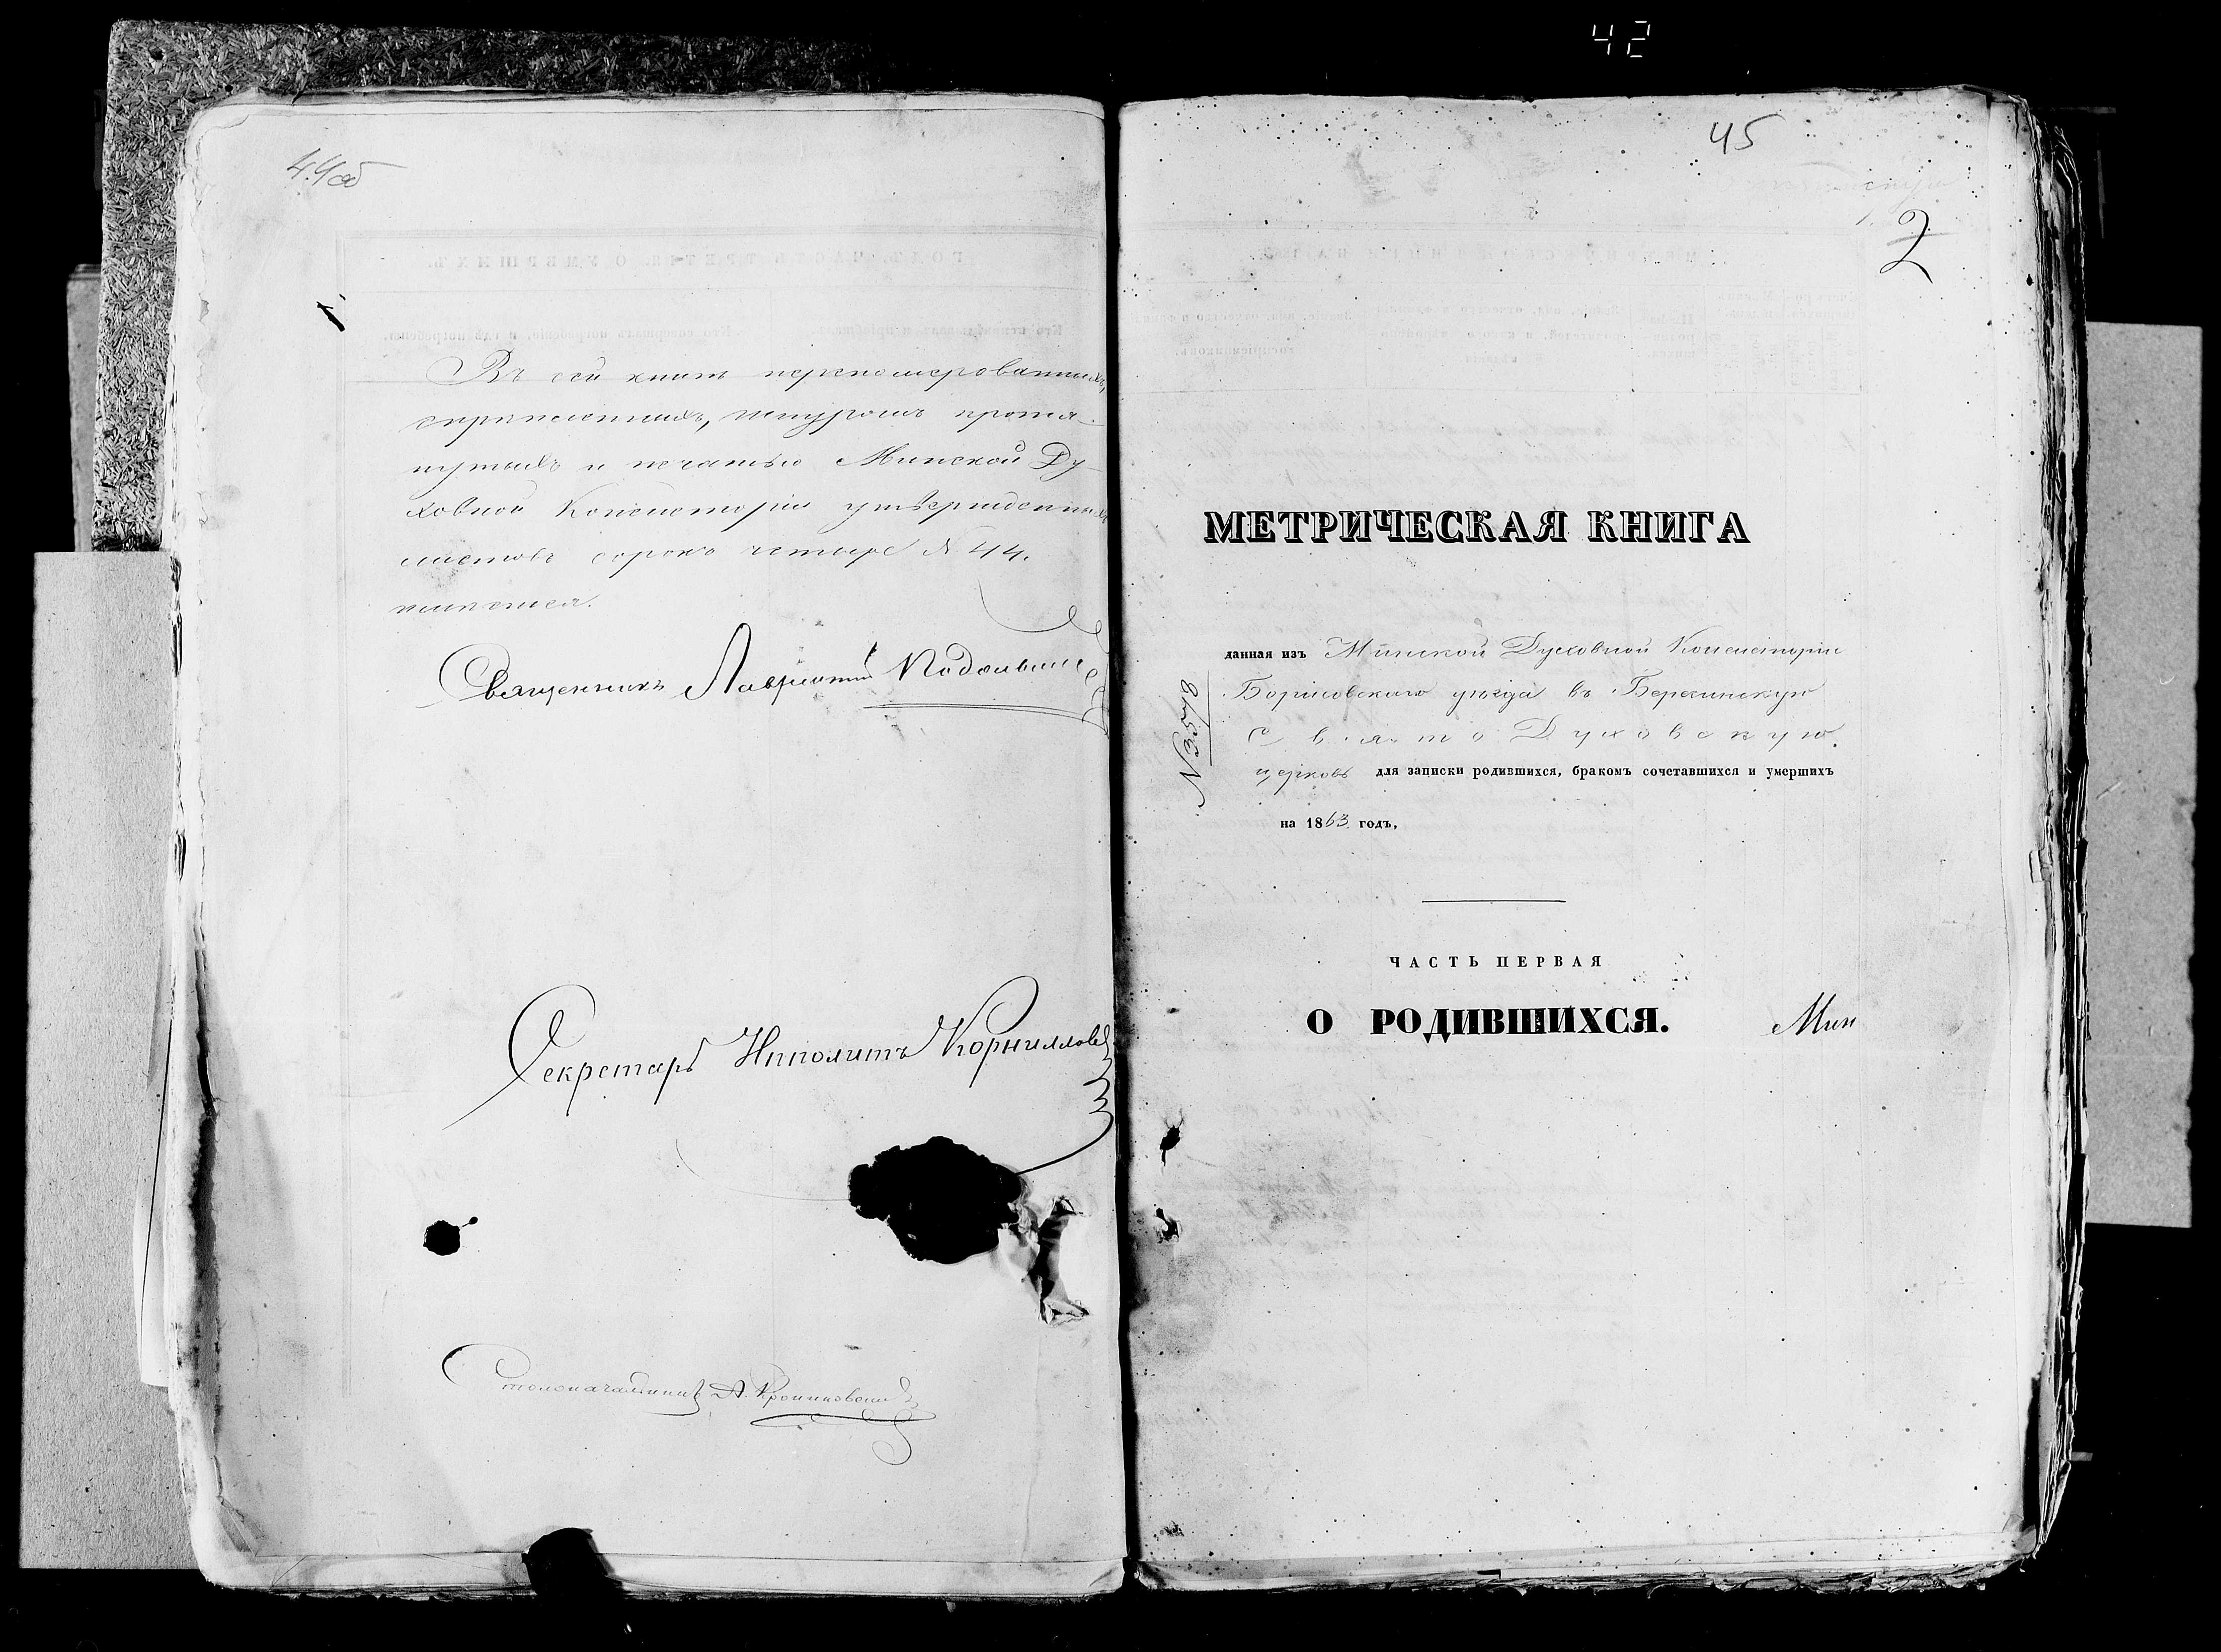 42
44об
Въ сей книгѣ перенумерованныхъ,
скрѣпленныхъ, шнуромъ протя-
нутыхъ и печатью Минской Ду-
ховной Консисторіи утвержденныхъ
листовъ сорокъ четыре № 44.
имѣется.
Священникъ Лаврентій
Секретарь Ипполитъ Корнилловъ
Столоначальникъ А.
45
2
МЕТРИЧЕСКАЯ КНИГА
данная изъ Минской Духовной Консисторіи
Борисовскаго уѣзда въ Березинскую
Свято Духовскую
церковь для записки родившихся, бракомъ сочетавшихся и умершихъ
на 1863 годъ,
№ 3578
ЧАСТЬ ПЕРВАЯ
О РОДИВШИХСЯ.
Мин